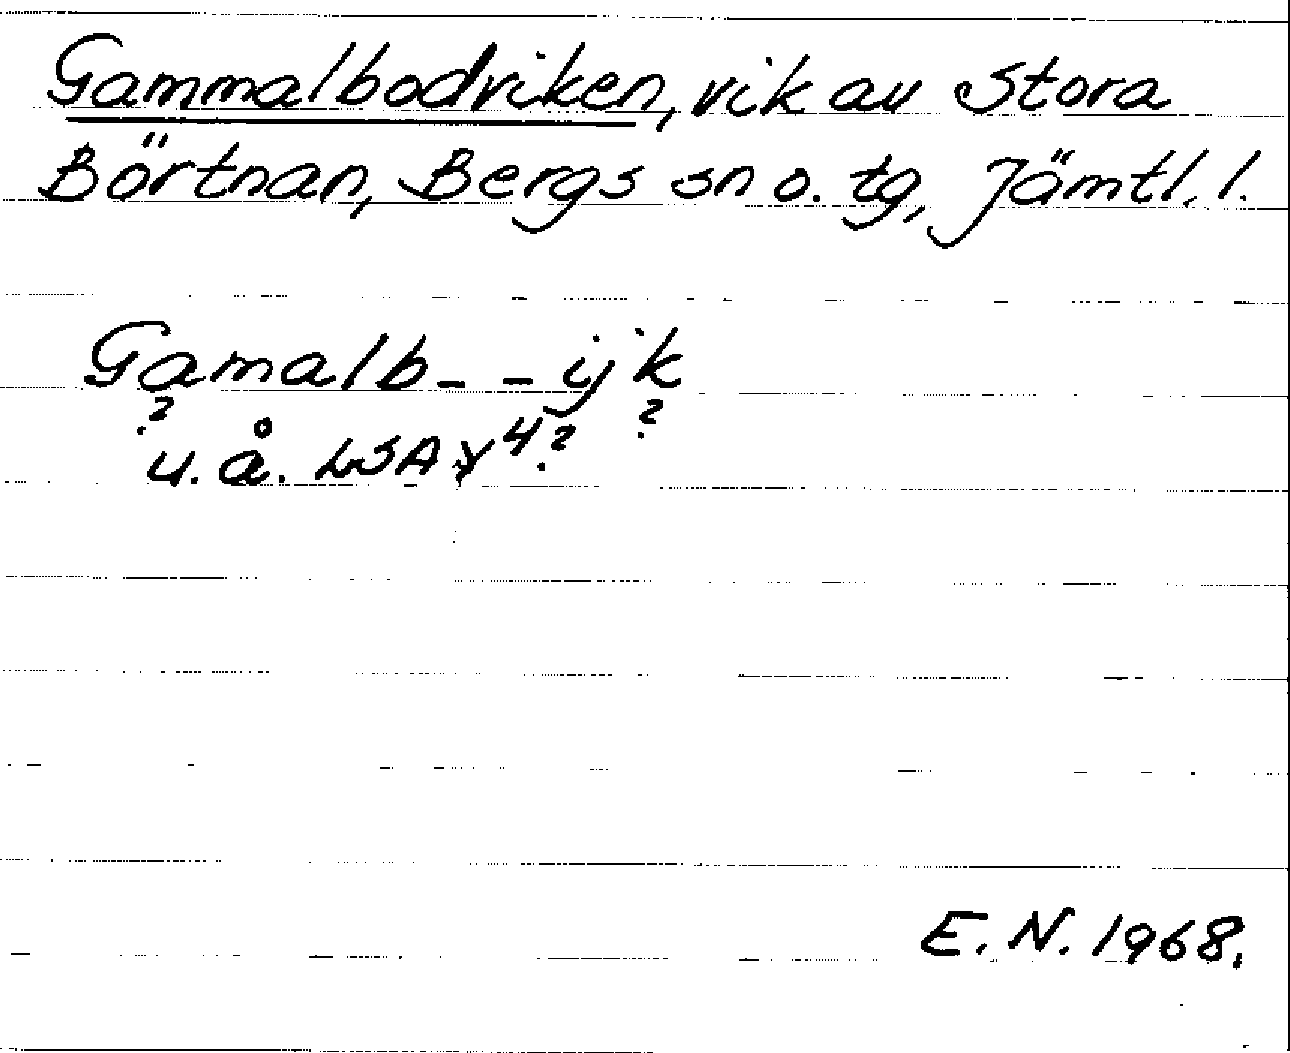 Gammalbodviken, vik av Stora
Börtnan, Bergs sn o. tg, Jämtl. l.
Gamalb- - ijk
? ?
u. å. LSA Y 4?
E. N. 1968.